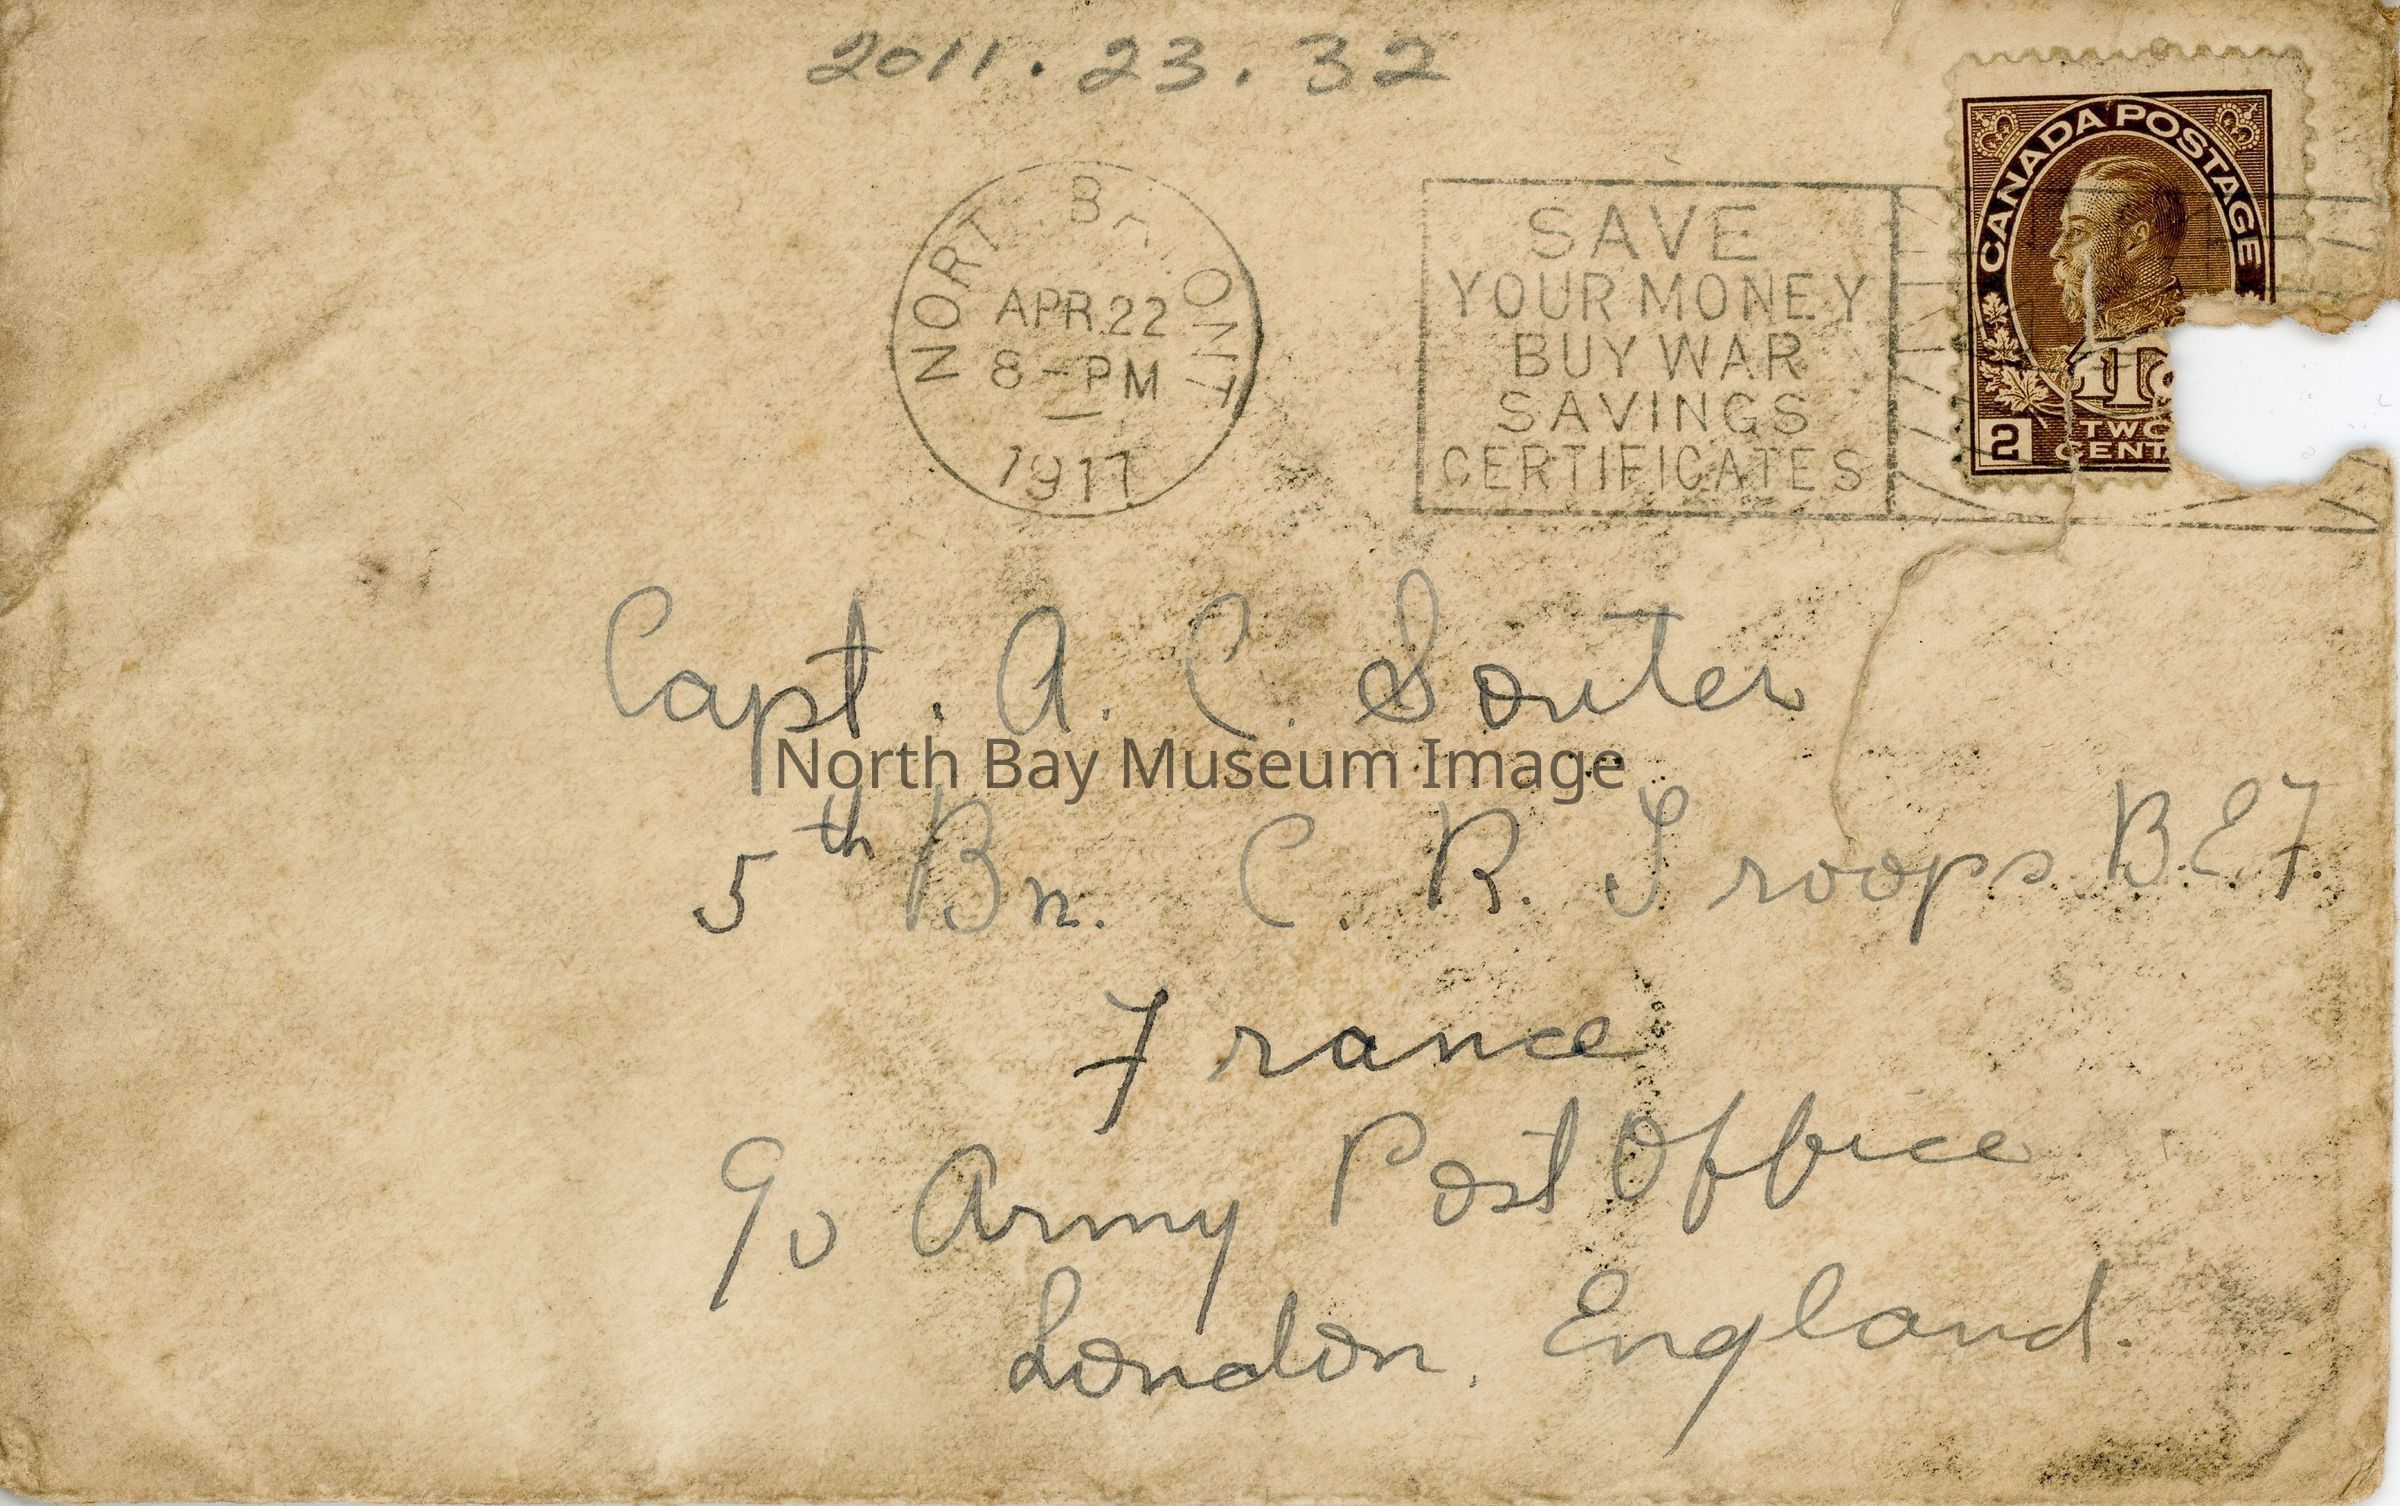 2011.23.32
NORT BA ONT
APR 22
8-PM
1917
SAVE
YOUR MONEY
BUY WAR
SAVINGS
CERTIFICATES
CANADA POSTAGE
1T
2 TWO
CENT
Capt. A. C. Souter
North Bay Museum Image
5th Bn. C. R. Troops. B.E.F.
France
c/o Army Post Office
London. England.